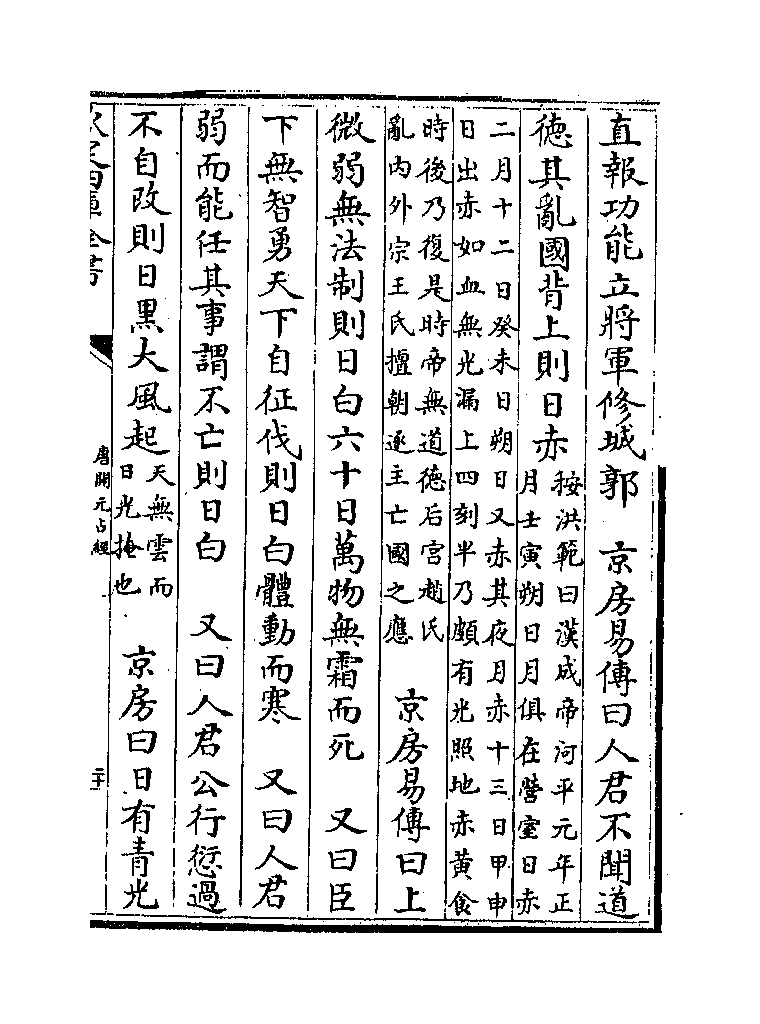 直報功能立將軍修城郭　京房易傳曰人君不聞道
德其亂國背上則日赤
按洪範曰漢成帝河平元年正
月壬寅朔日月俱在營室日赤
二月十二日癸未日朔日又赤其夜月赤十三日甲申
日出赤如血無光漏上四刻半乃頗有光照地赤黃食
時後乃復是時帝無道德后宮趙氏
亂內外宗王氏擅朝遂主亡國之應
京房易傳曰上
微弱無法制則日白六十日萬物無霜而死　又曰臣
下無智勇天下自征伐則日白體動而寒　又曰人君
弱而能任其事謂不亡則日白　又曰人君公行愆過
不自改則日黑大風起
天無雲而
日光掩也
京房曰日有青光
欽定四庫全書
唐開元占經
二十